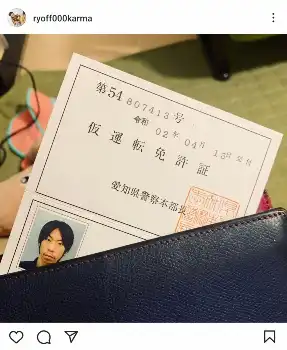 ryoff000karma
第54 807413号
令和 02年 04月 10日 交付
仮運転免許証
愛知県警察本部長